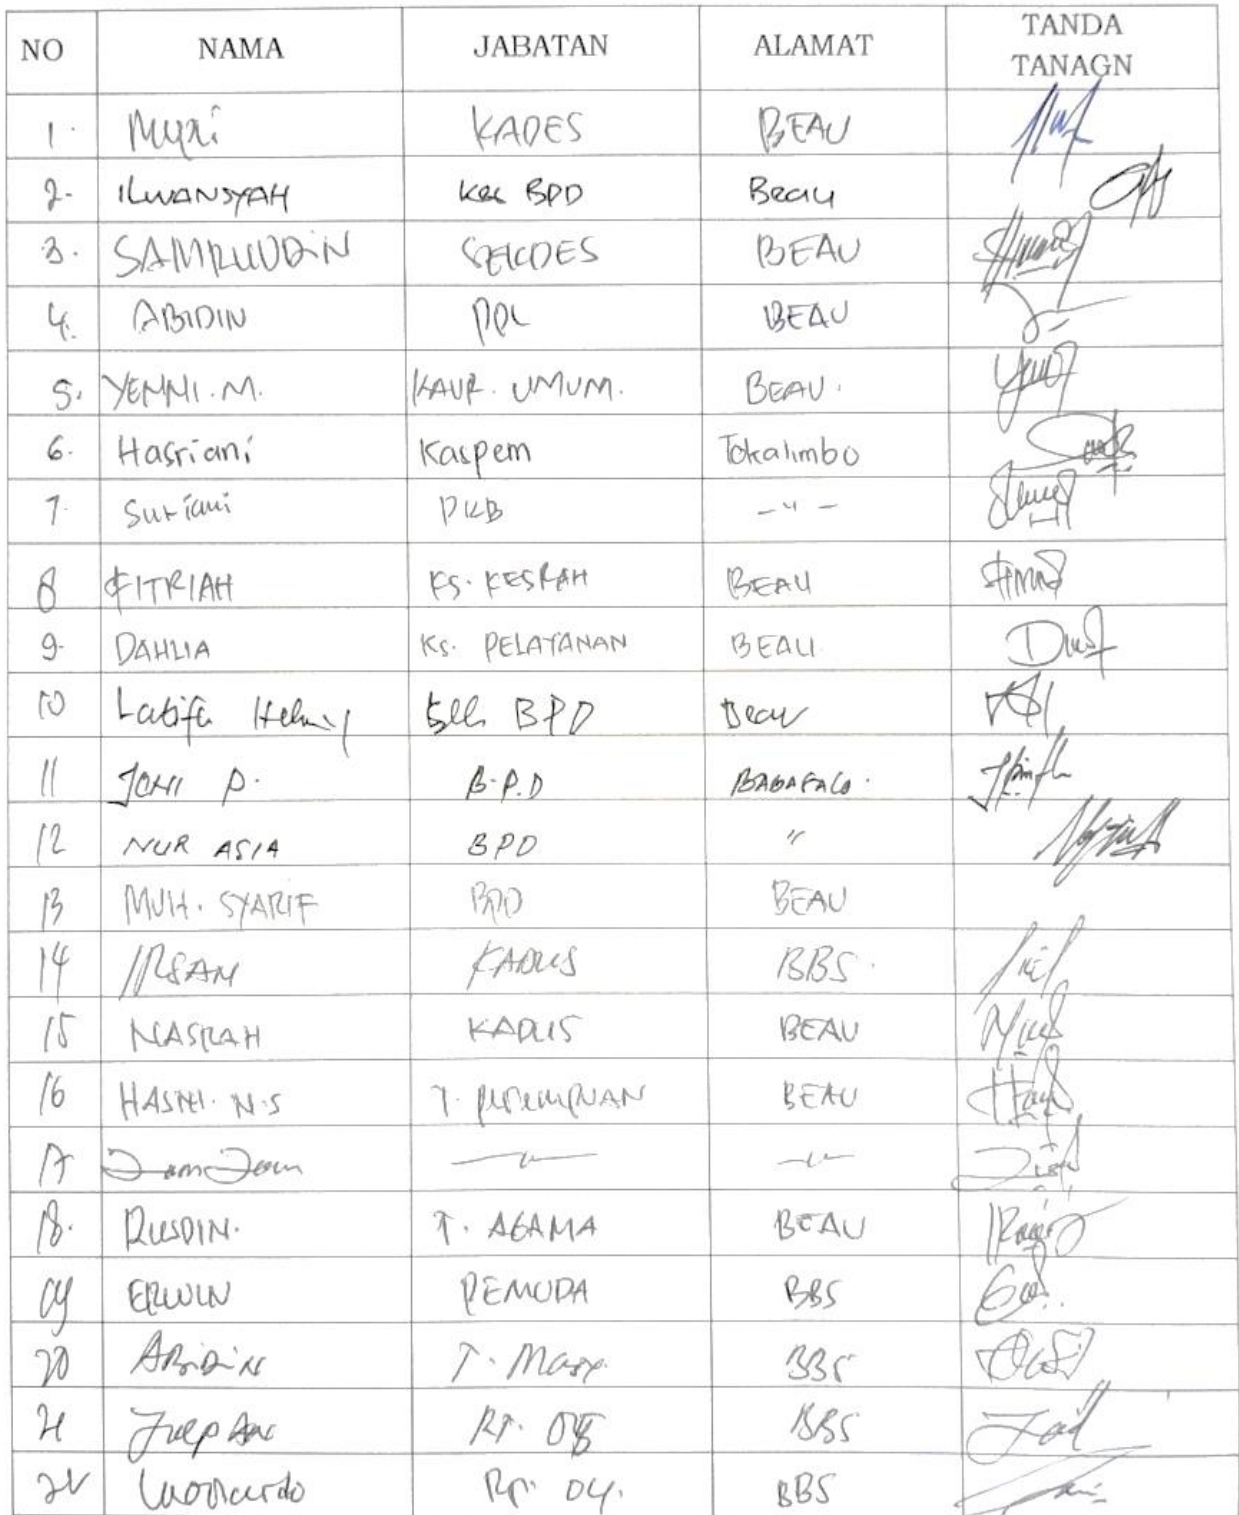 NO NAMA JABATAN ALAMAT TANDA
TANAGN
1. KADES BEAU
2. ILWANSYAH BPD Beau
3. SAMRUDDIN SEKDES BEAU
4. ABIDIN PPL BEAU
5. YENNI. M. KAUR. UMUM. BEAU.
6. Hasriani Kaspem Tokalimbo
7. Suriani PKB - " -
8 FITRIAH KS. KESRAH BEAU
9. DAHLIA KS. PELAYANAN BEAU
10 BPD Beau
11 JONI P. B.P.D
12 NUR ASIA BPD "
13 MUH. SYARIF BPD BEAU
14 IRSAN KADUS BBS.
15 NASRAH KADUS BEAU
16 HASNI. N.S T. perempuan BEAU
17 - " - - " -
18. RUSDIN. T. AGAMA BEAU
19 ERWIN PEMUDA BBS
20 ABIDIN T. Masy. BBS
21 RT. BBS
22 04. BBS